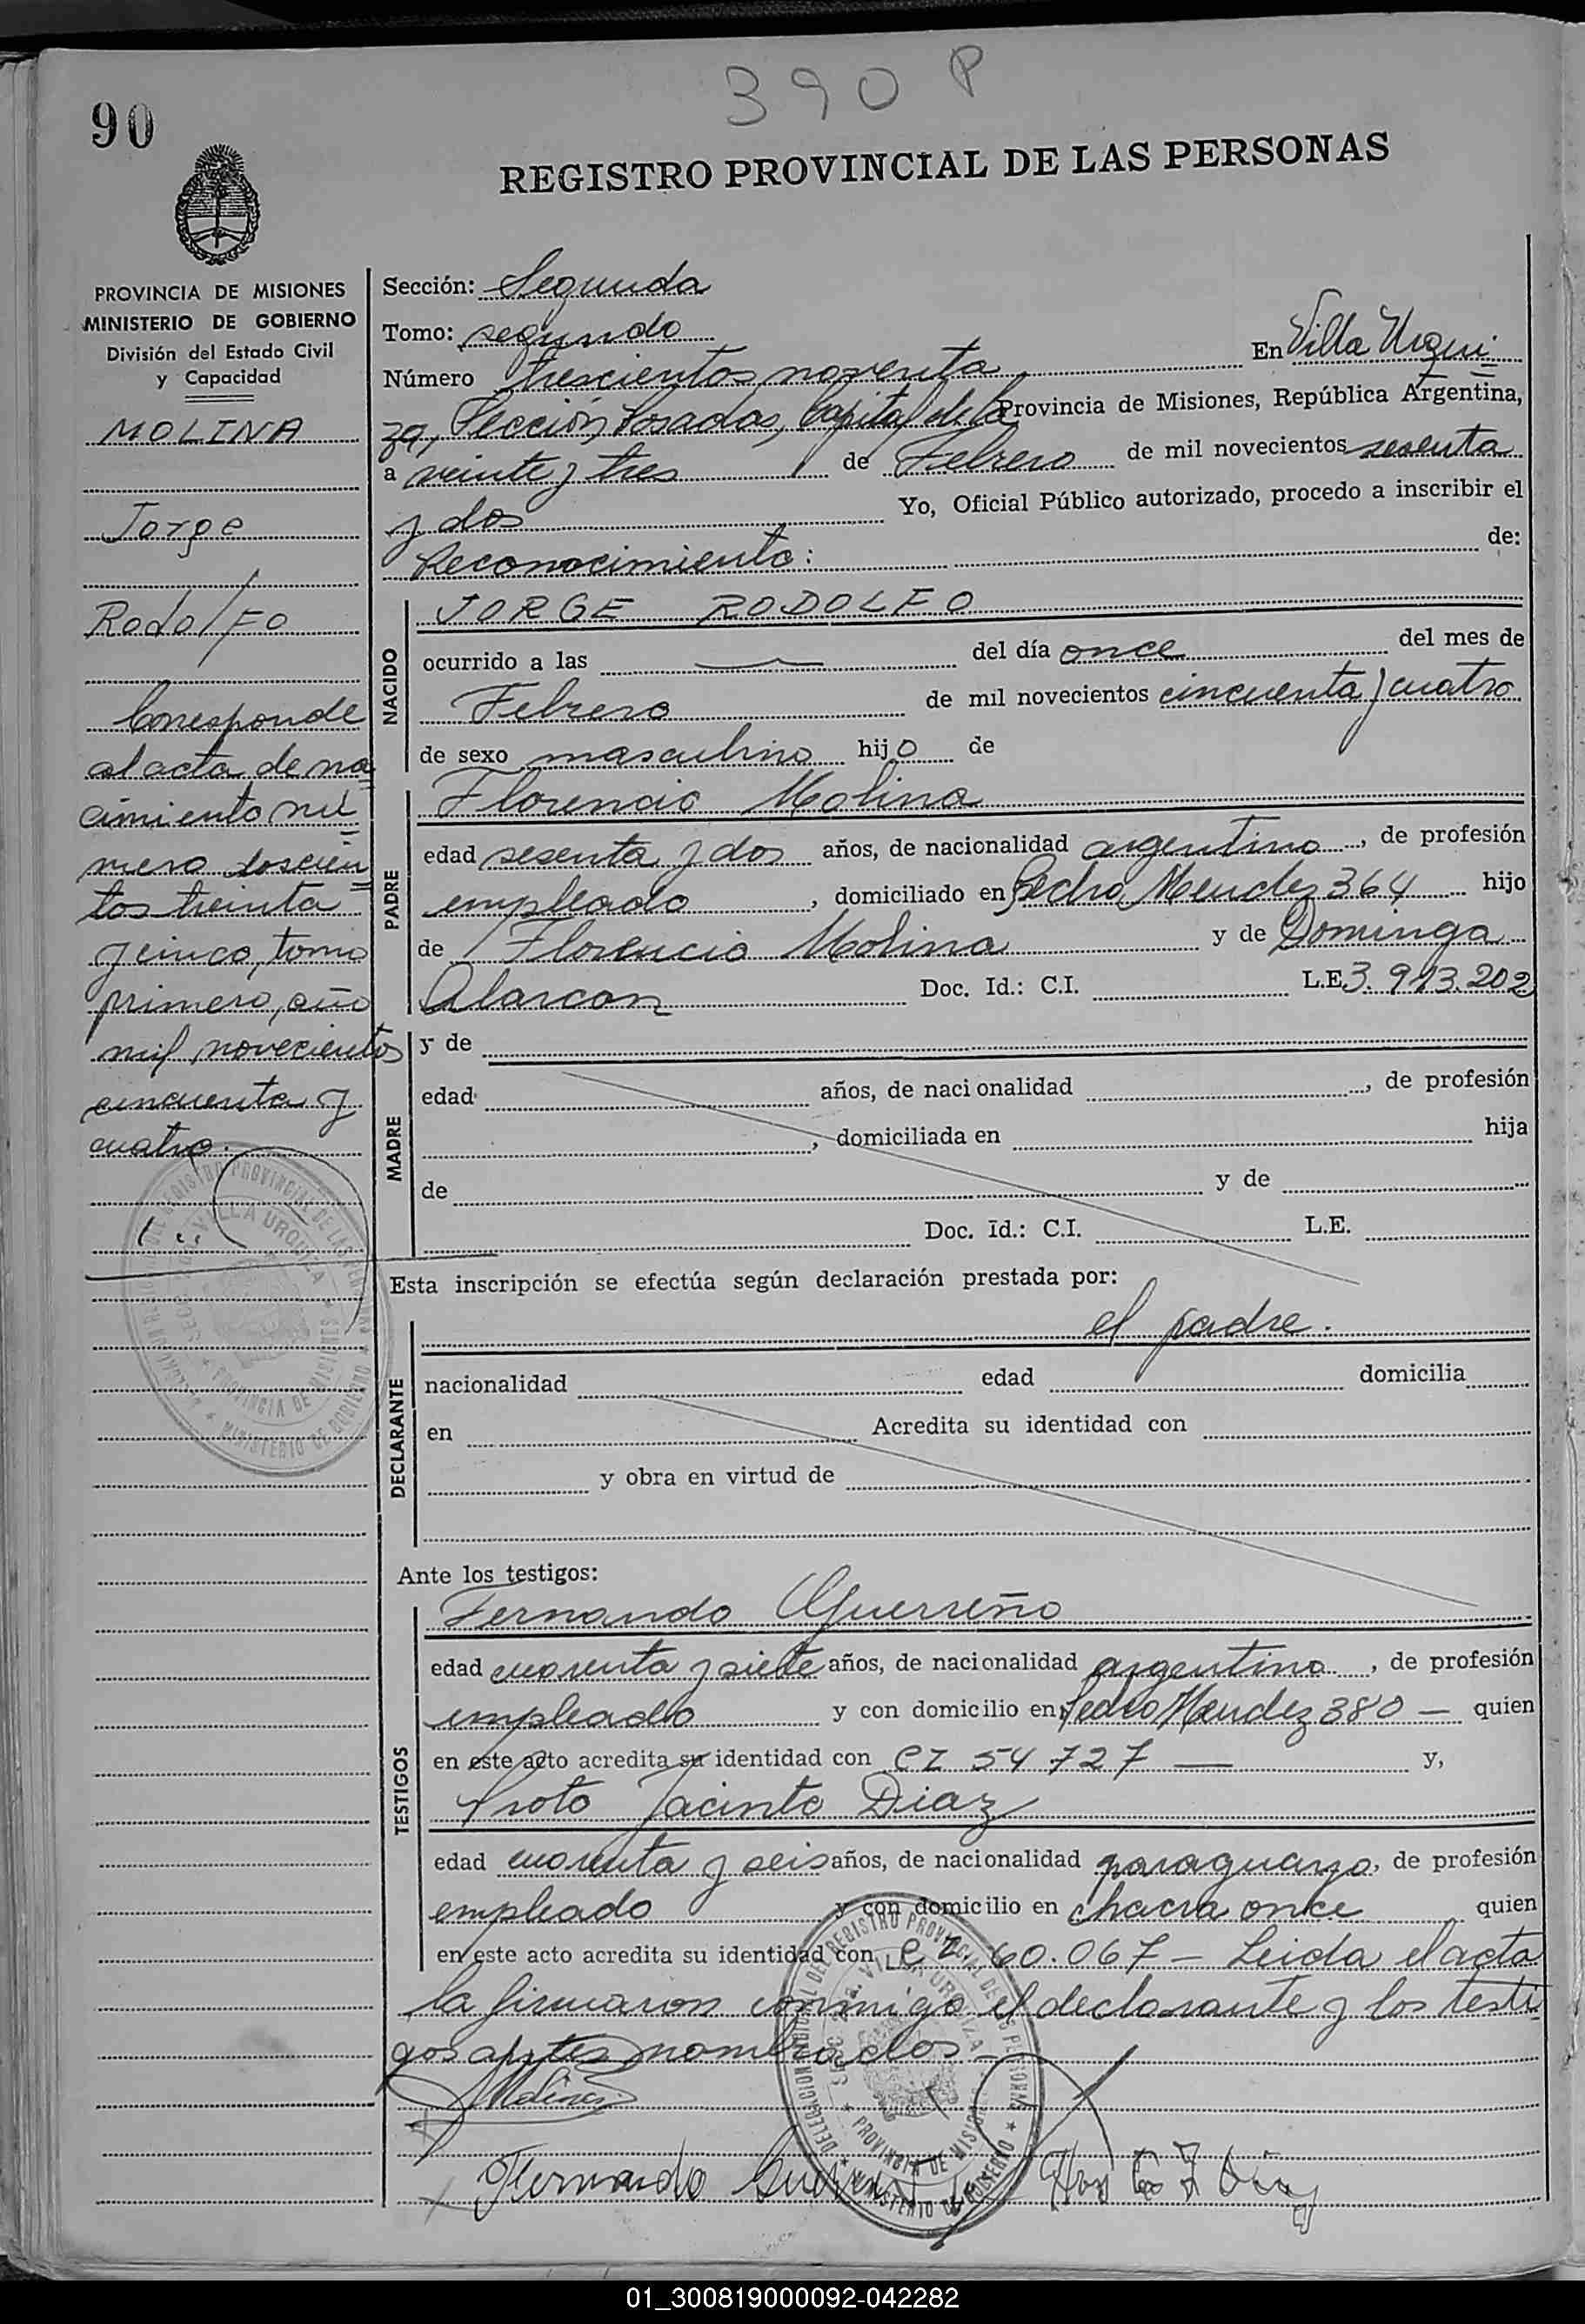 390 P
90
REGISTRO PROVINCIAL DE LAS PERSONAS
PROVINCIA DE MISIONES
MINISTERIO DE GOBIERNO
División del Estado Civil
y Capacidad
MOLINA
Jorge
Rodolfo
Corresponde
al acta de na
cimiento nú
mero doscien
tos treinta
y cinco, tomo
primero, año
mil novecientos
cincuenta y
cuatro.
Sección: Segunda
Tomo: segundo
Número trescientos noventa En Villa Urqui
za, Sección Posadas, Capital de la Provincia de Misiones, República Argentina,
a veinte y tres de Febrero de mil novecientos sesenta
y dos Yo, Oficial Público autorizado, procedo a inscribir el
Reconocimiento: de:
NACIDO
JORGE RODOLFO
ocurrido a las — del día once del mes de
Febrero de mil novecientos cincuenta y cuatro
de sexo masculino hijo de
PADRE
Florencio Molina
edad sesenta y dos años, de nacionalidad argentino, de profesión
empleado, domiciliado en Pedro Mendez 364 hijo
de Florencio Molina y de Dominga
Alarcon Doc. Id.: C.I. L.E. 3.913.202
MADRE
y de
edad años, de nacionalidad , de profesión
, domiciliada en hija
de y de
Doc. Id.: C.I. L.E.
Esta inscripción se efectúa según declaración prestada por:
DECLARANTE
el padre.
nacionalidad edad domicilia
en Acredita su identidad con
y obra en virtud de
Ante los testigos:
TESTIGOS
Fernando Guerreño
edad cuarenta y siete años, de nacionalidad argentino, de profesión
empleado y con domicilio en Pedro Mendez 380 — quien
en este acto acredita su identidad con CI 54.727 — y,
Proto Jacinto Diaz
edad cuarenta y seis años, de nacionalidad paraguayo, de profesión
empleado y con domicilio en chacra once quien
en este acto acredita su identidad con CI 60.067 — Leida el acta
la firmaron conmigo el declarante y los testi
gos antes nombrados —
Molina
Fernando
DELEGACION DEL REGISTRO PROVINCIAL DE LAS PERSONAS
VILLA URQUIZA
PROVINCIA DE MISIONES
MINISTERIO DE GOBIERNO
01_300819000092-042282